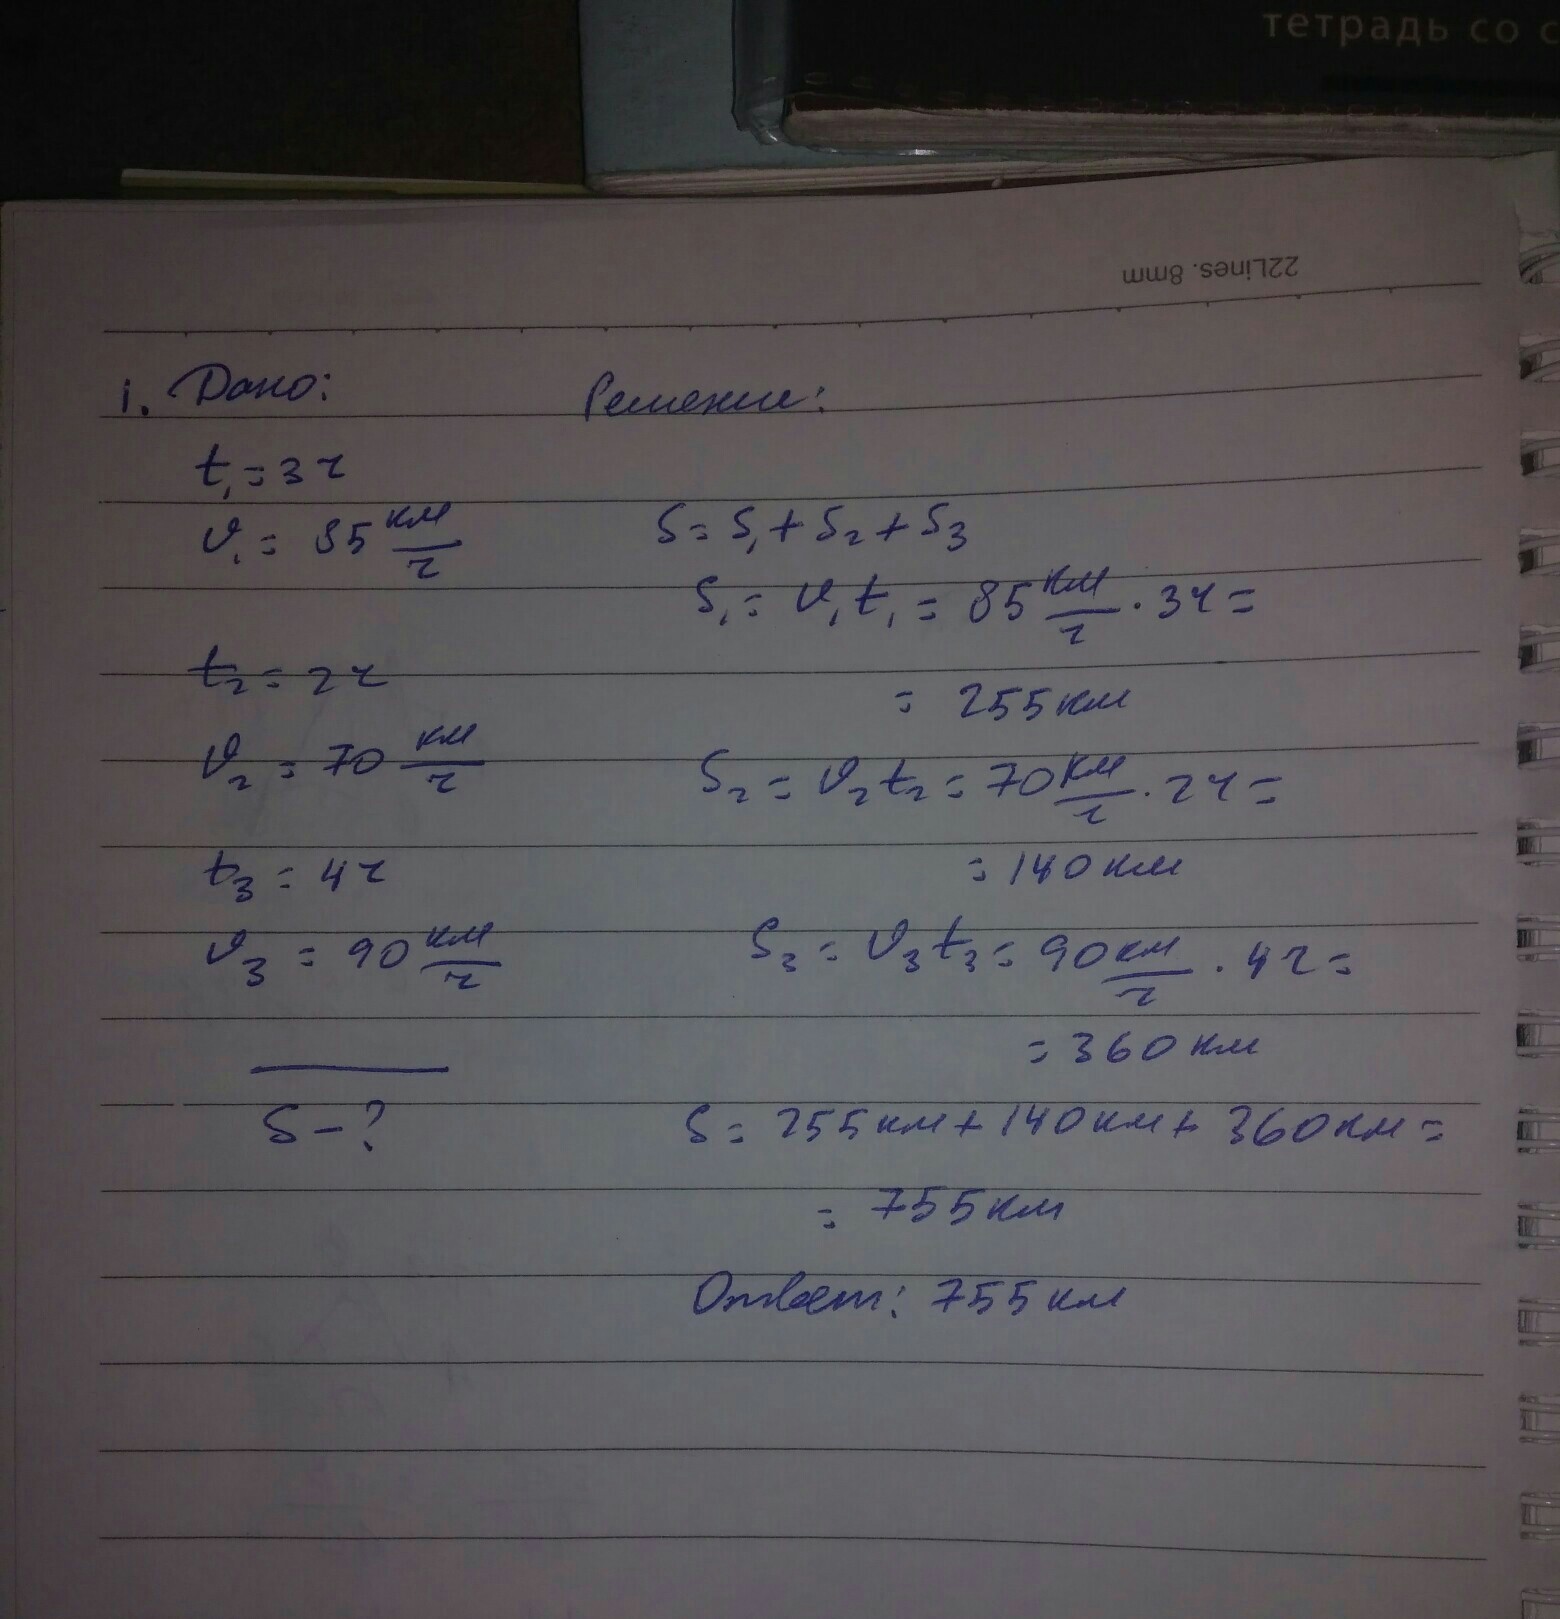 тетрадь со с
22Lines. 8mm
1. Дано:
t₁ = 3ч
v₁ = 85 км/ч
t₂ = 2ч
v₂ = 70 км/ч
t₃ = 4ч
v₃ = 90 км/ч
S - ?
Решение:
S = S₁ + S₂ + S₃
S₁ = v₁t₁ = 85 км/ч · 3ч =
= 255км
S₂ = v₂t₂ = 70 км/ч · 2ч =
= 140км
S₃ = v₃t₃ = 90 км/ч · 4ч =
= 360км
S = 255км + 140км + 360км =
= 755км
Ответ: 755км